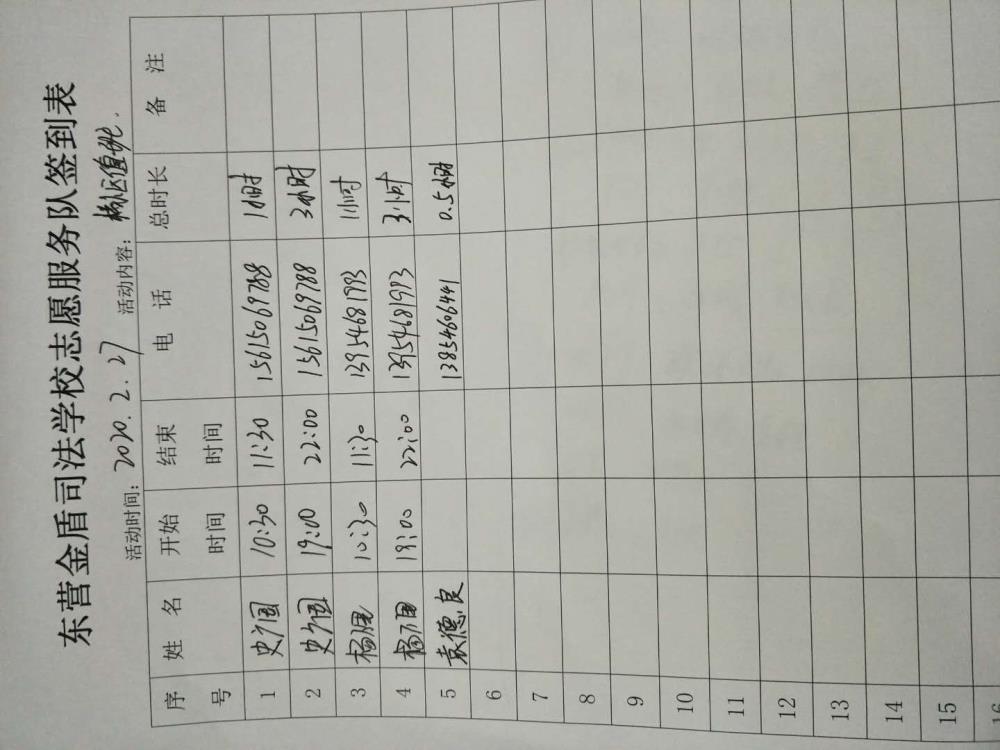 东营金盾司法学校志愿服务队签到表
活动时间: 2020.2.27 活动内容:
序号 姓 名 开始时间 结束时间 电 话 总时长 备 注
1 10:30 11:30 15615069788 1小时
2 19:00 22:00 15615069788 3小时
3 杨 10:30 11:30 1小时
4 杨 19:00 22:00 3小时
5 袁德良 13854606441 0.5小时
6
7
8
9
10
11
12
13
14
15
16